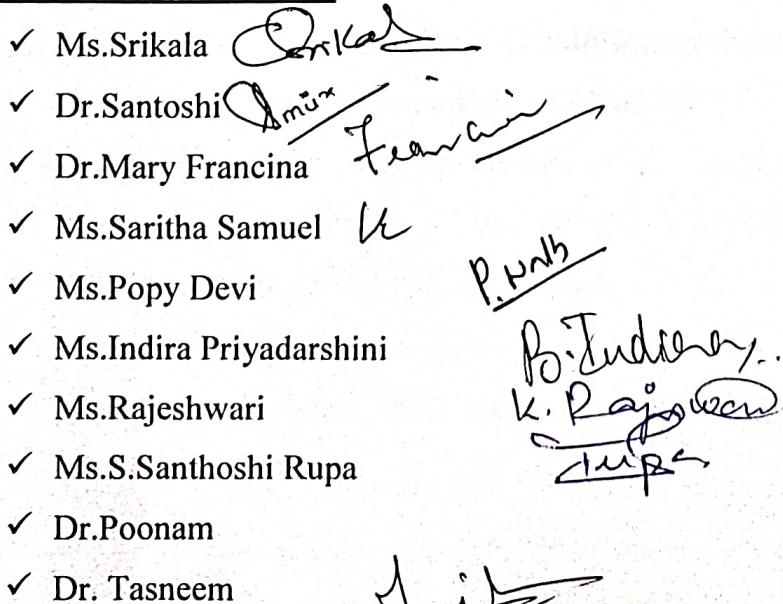 ✓ Ms.Srikala Srikala
✓ Dr.Santoshi
✓ Dr.Mary Francina
✓ Ms.Saritha Samuel
✓ Ms.Popy Devi
✓ Ms.Indira Priyadarshini B.Indira
✓ Ms.Rajeshwari K. Rajeswari
✓ Ms.S.Santhoshi Rupa Rupa
✓ Dr.Poonam
✓ Dr. Tasneem